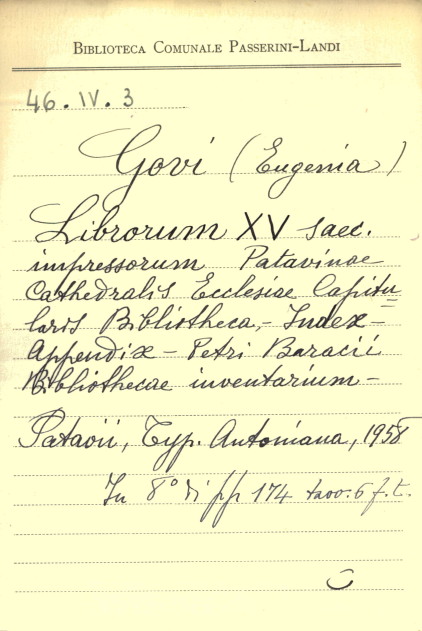 BIBLIOTECA COMUNALE PASSERINI-LANDI
46. IV. 3
Govi (Eugenia)
Librorum XV saec.
impressorum Patavinae
Cathedralis Ecclesiae Capitu=
laris Bibliotheca, - Index -
Appendix - Petri Barocii
Bibliothecae inventarium -
Patavii, Typ. Antoniana, 1958
In 8° di pp 174 tavv. 6 f. t.